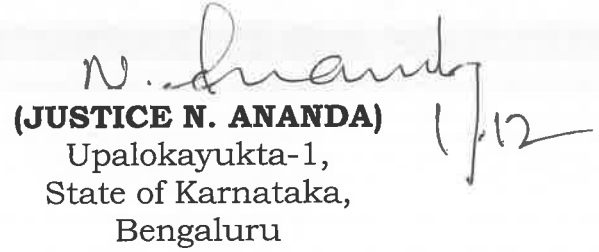 N. Ananda
(JUSTICE N. ANANDA) 1/12
Upalokayukta-1,
State of Karnataka,
Bengaluru